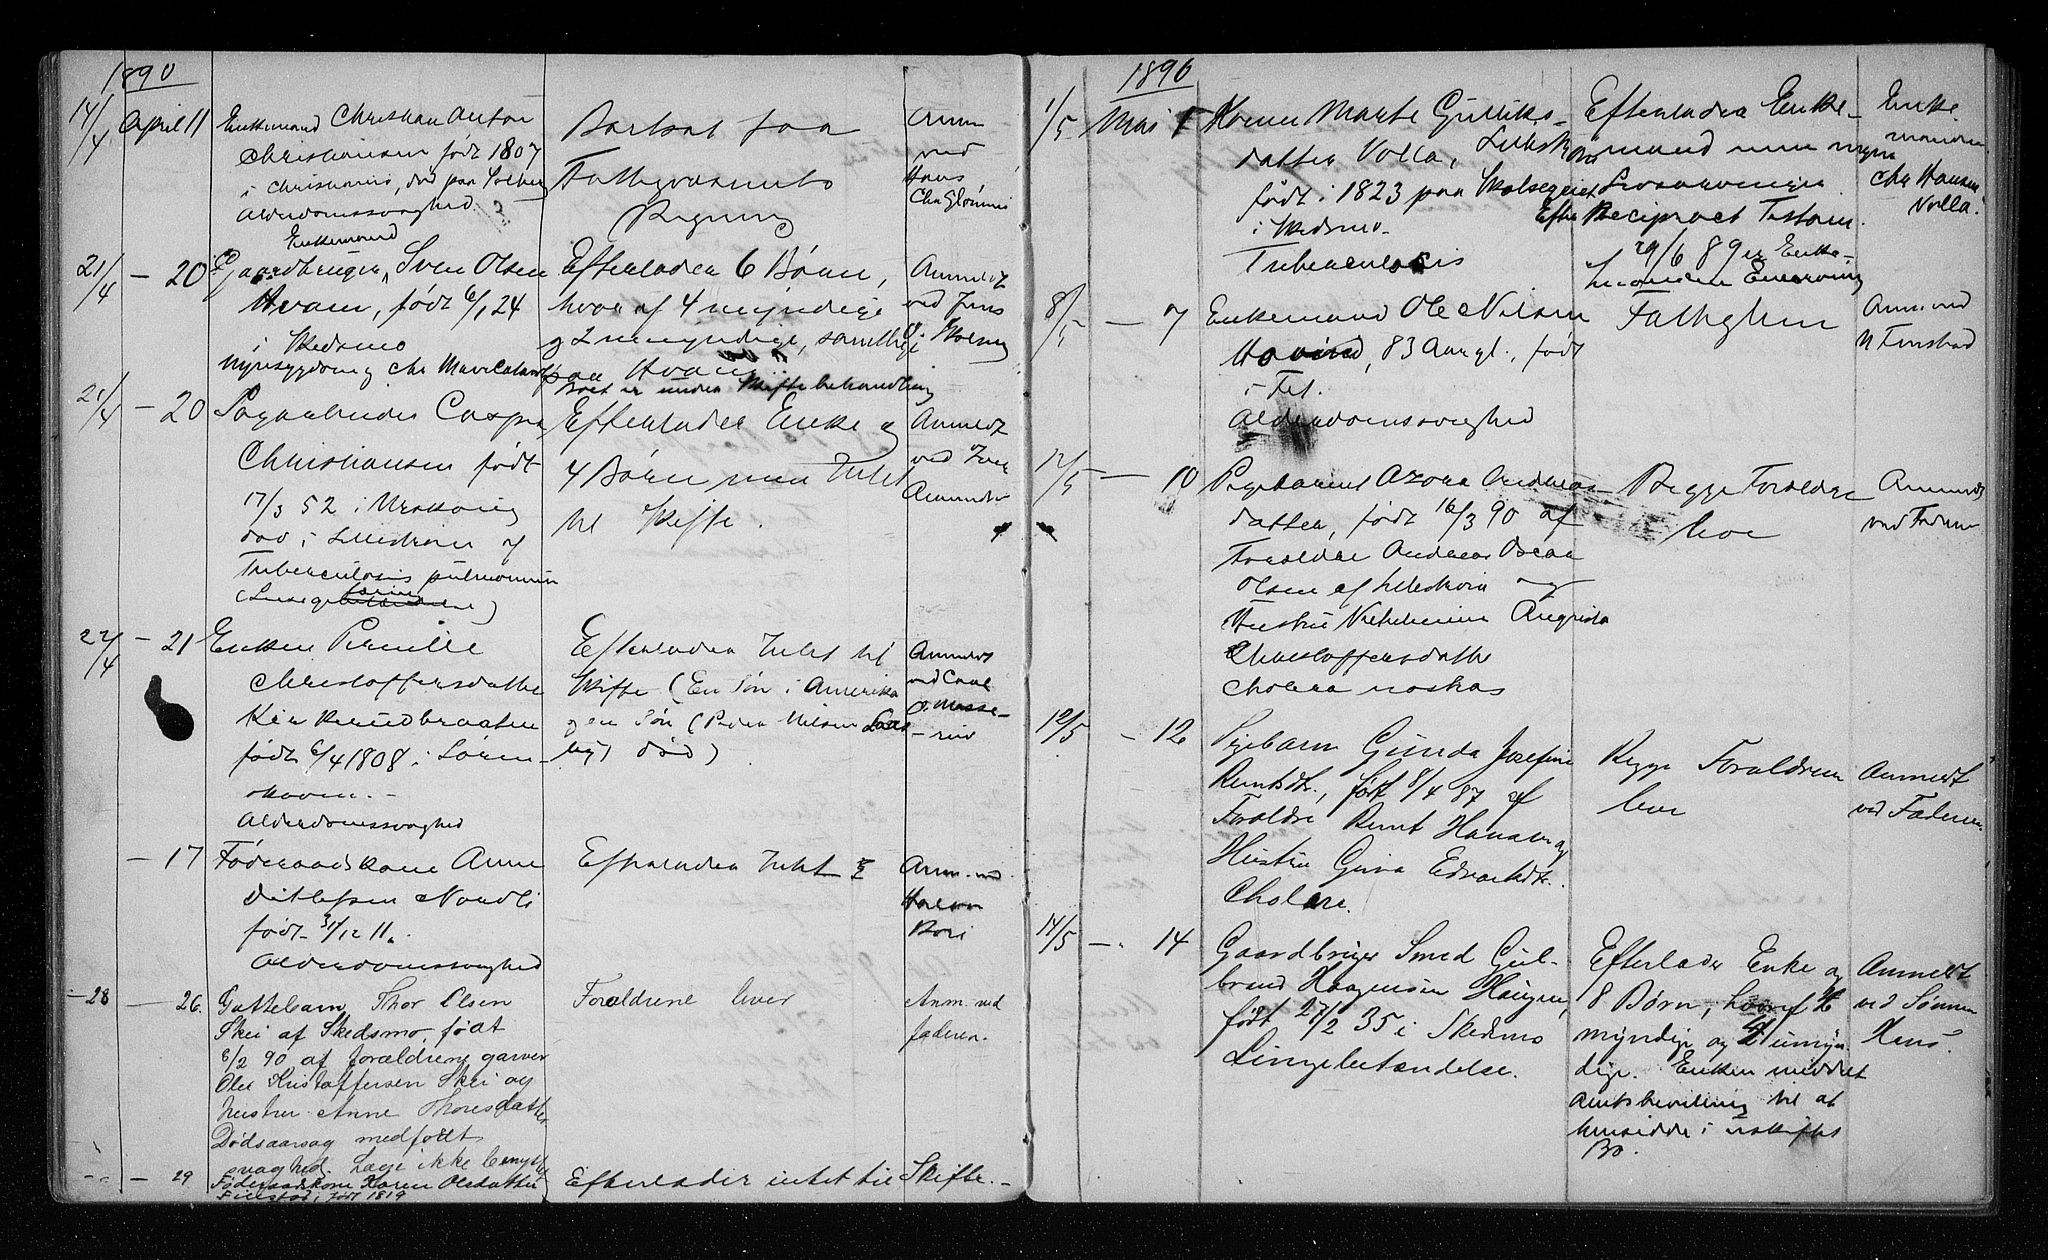 1890
14/4 April 11 Enkemand Christian Anton
Christiansen født 1807
i Christiania, død paa
Alderdomssvaghed
Bortsat for
Fattigvæsenets
Regning
Anm
ved
Hans
Chr Glömmi
Enkemand
21/4 - 20 Gaardbruger Sven Olsen
Hvam, født 6/1 24
i Skedsmo
Nyresygdom og
Efterlader 6 Børn,
hvoraf 4 myndige
og 2 umyndige, samtlige
paa Hvam
Boet er under Skiftebehandling
Anmeldt
ved Jens
21/4 - 20 Sagarbeider Casper
Christiansen født
17/3 52 i Urskoug
død i Lillestrøm af
Tuberculosis pulmonum
Efterlader Enke og
4 Børn men Intet
til Skifte.
Anmeldt
ved
22/4 - 21 Enken Pernille
Christoffersdatter
født 6/4 1808 i Søren-
skoven. -
Alderdomssvaghed
Efterlader Intet til
Skifte (En Søn i Amerika
og en Søn (Peder Nilsen
død)
Anmeldt
ved Carl
O. Masse-
rud
- 17 Føderaadskone Anne
Ditlefsen Nordli
født 31/12 11.
Alderdomssvaghed
Efterlader Intet
Anm. ved
- 28 - 26. Guttebarn, Thor Olsen
Skei af Skedsmo, født
6/2 90 af forældrene garver
Ole Kristoffersen Skei og
hustru Anne Thoresdatter
Dødsaarsag medfødt
svaghed. Læge ikke benyttet
Forældrene lever
Anm. ved
faderen.
- 29 Føderaadskone Karen Olsdatter
født 1819
Efterlader intet til Skifte. -
1890
1/5 Mai 1 Konen Marte Gulliks-
datter Volla,
født i 1823 paa
i Skedsmo
Tuberculosis
Efterlader Enke-
mand men ingen
Livsarvinger.
Efter Reciproct Testam.
29/6 89 er Enke-
manden Enearving
Enke-
manden
Chr Hansen
Volla.
8/5 - 7 Enkemand Ole Nilsen
Hovind, 83 Aar gl., født
i Fet.
Alderdomssvaghed
Fattiglem
Anm. ved
N Finstad
12/5 - 10 Pigebarnet Azora Andreas-
datter, født 16/3 90 af
Forældre Andreas Oscar
Olsen af Lillestrøm og
Hustru Vilhelmine Augusta
Christoffersdatter
Cholera nostras
Begge Forældre
leve
Anmeldt
ved Faderen
12/5 - 12 Pigebarn Gunda Josefine
Berntsdtr., født 8/4 87 af
Forældre Bernt Hansen og
Hustru Gina Edvartsdtr.
Cholera.
Begge Forældrene
leve
Anmeldt
ved Faderen.
14/5 - 14 Gaardbruger Smed Gul-
brand Haagensen Haugen,
født 27/2 35 i Skedsmo
Lungebetændelse.
Efterlader Enke og
8 Børn, hvoraf 4
myndige og 4 umyn
dige. Enken meddelt
Amtsbevilling til at
hensidde i uskiftet
Bo.
Anmeldt
ved Sønnen
Hans.